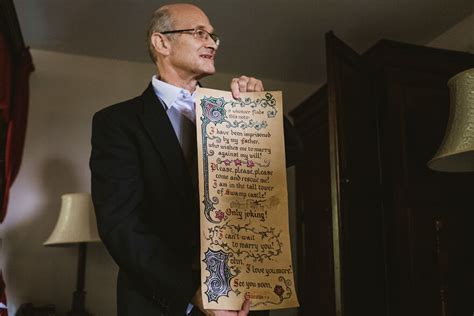 To whoever finds
this note:
I have been imprisoned
by my father,
who wishes me to marry
against my will!
Please, please, please
come and rescue me!
I am in the tall tower
of Swamp castle!
Only joking!
I can't wait
to marry you!
John,
I love you more.
See you soon.